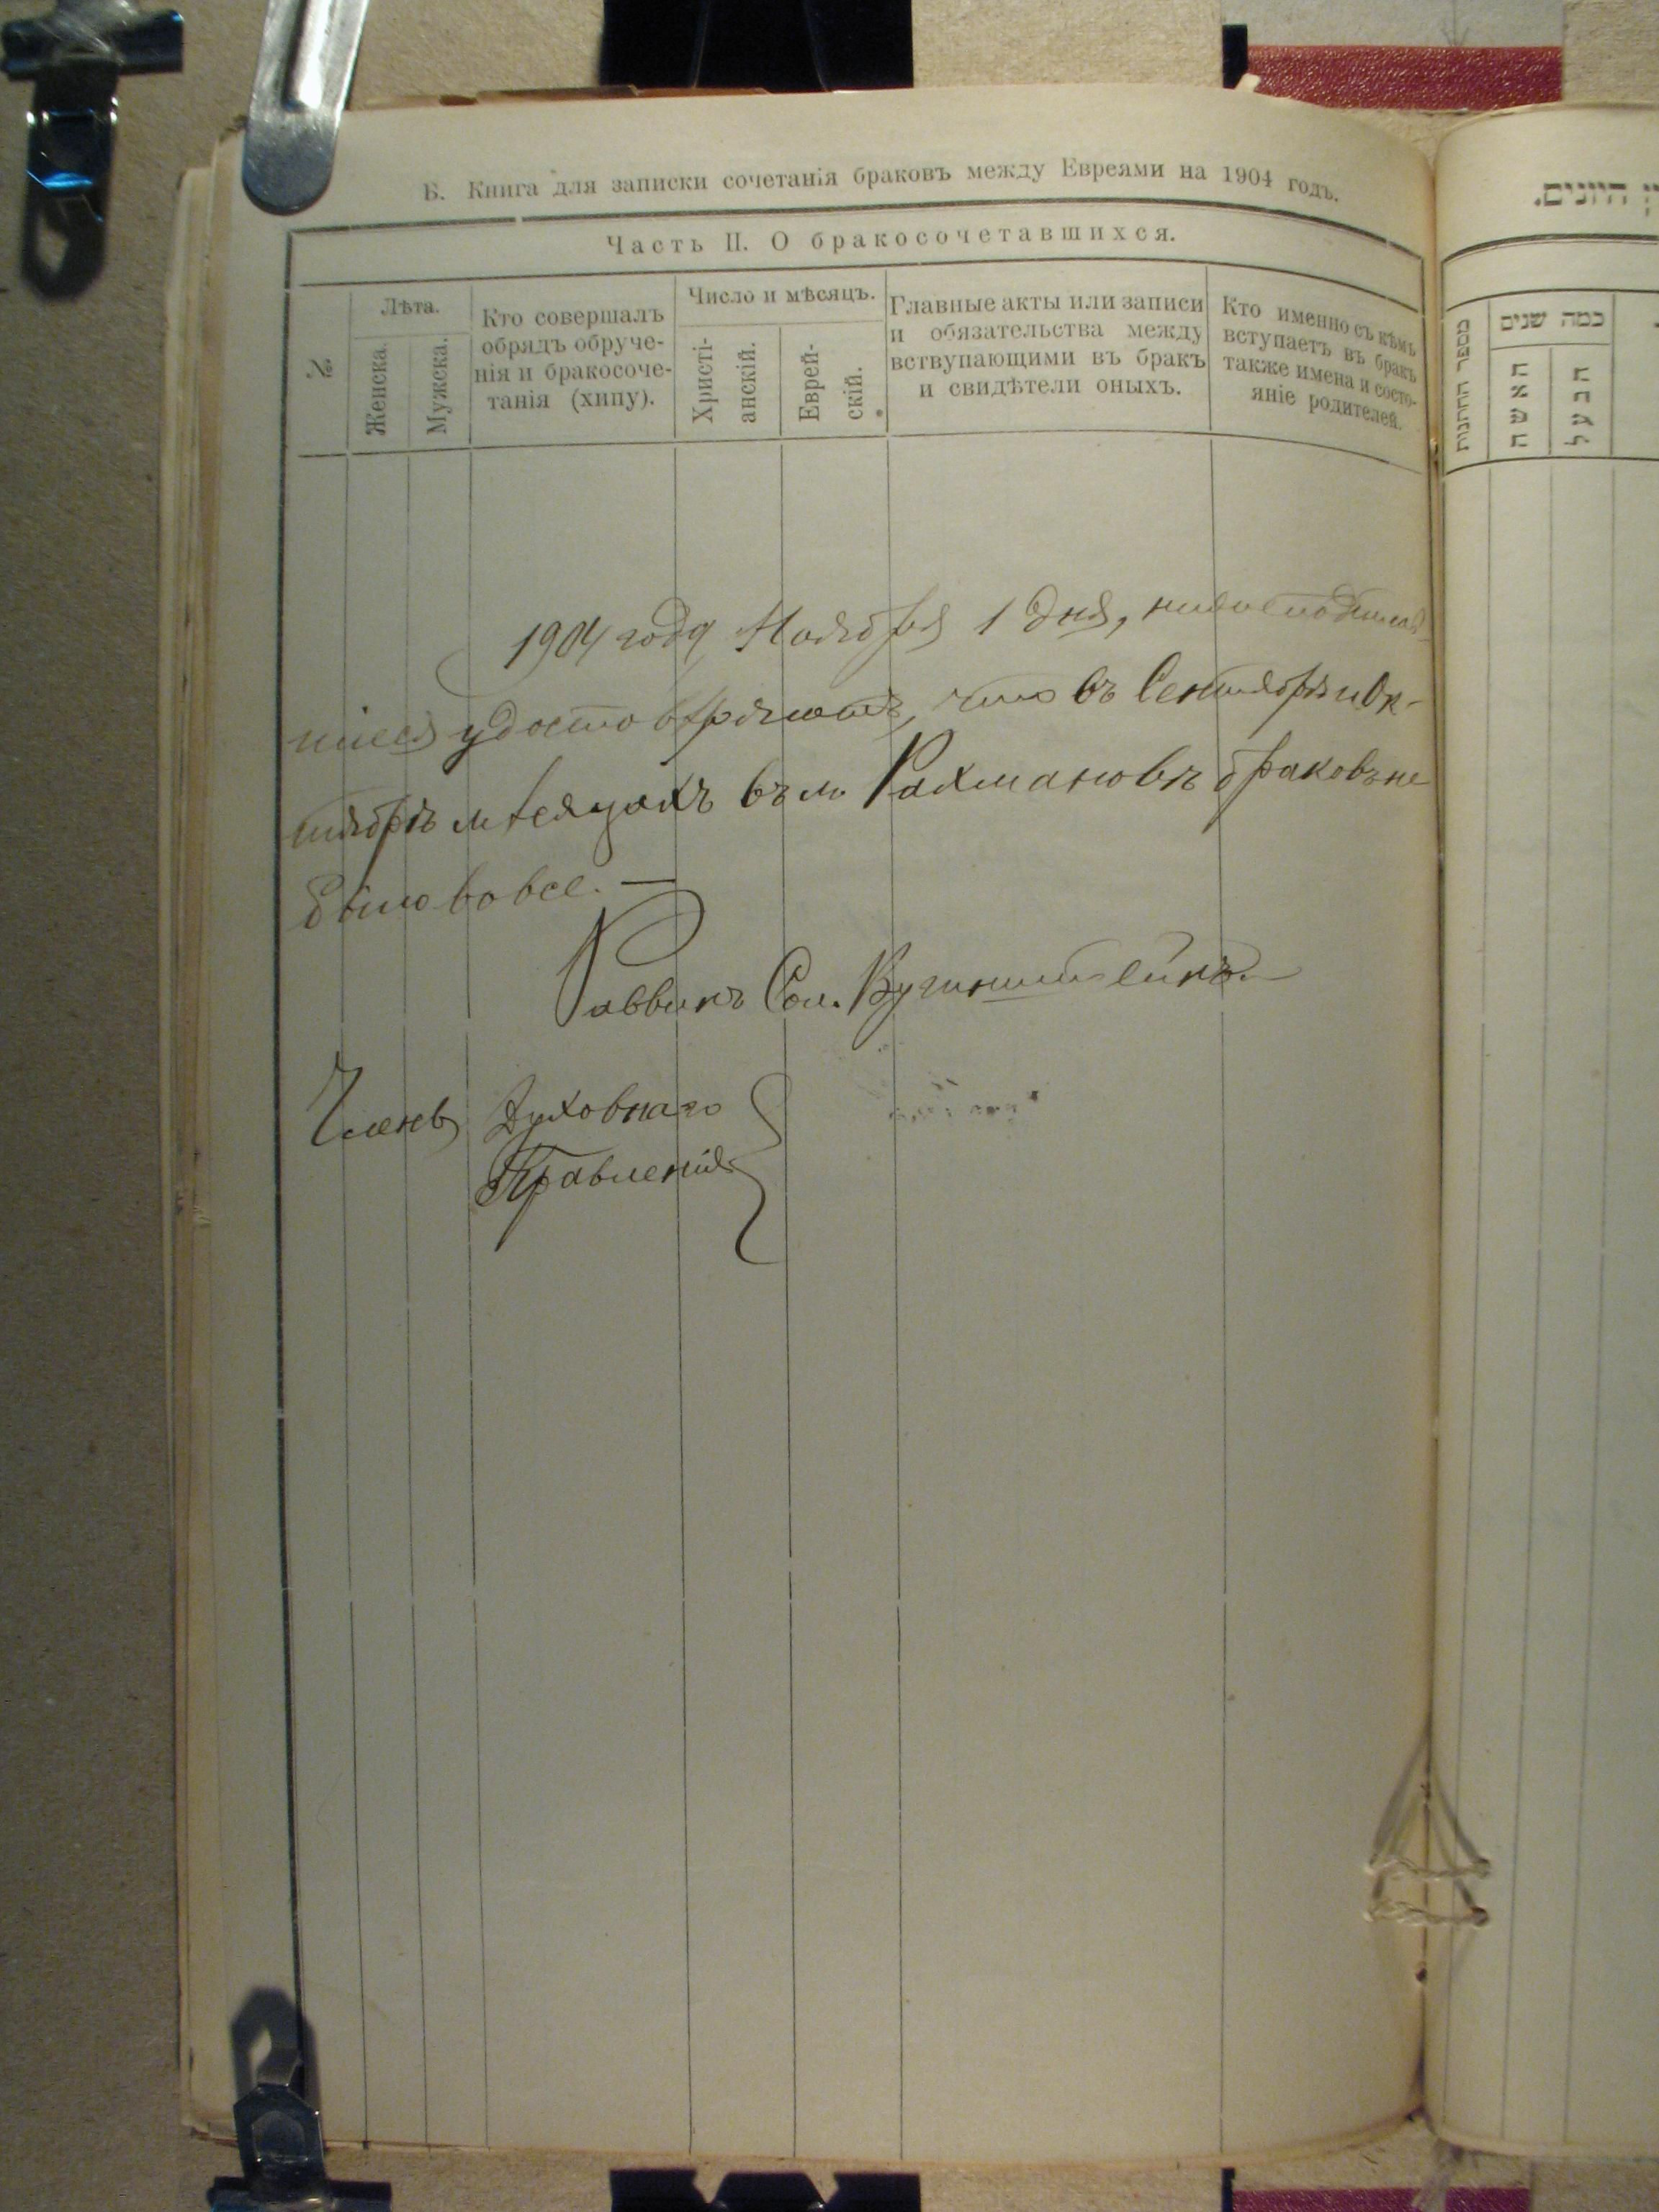 Б. Книга для записки сочетанія браковъ между Евреями на 1904 годъ.
Часть II. О бракосочетавшихся.
№
Лѣта.
Женска.
Мужска.
Кто совершалъ
обрядъ обруче-
нія и бракосоче-
танія (хипу).
Число и мѣсяцъ.
Христі-
анскій.
Еврей-
скій.
Главные акты или записи
и обязательства между
вствупающими въ бракъ
и свидѣтели оныхъ.
Кто именно съ кѣмъ
вступаетъ въ бракъ
также имена и состо-
яніе родителей.
1904 года Ноября 1 дня, нижеподписав-
шіеся удостовѣряютъ, что въ Сентябрѣ и Ок-
тябрѣ мѣсяцахъ въ м. Рахмановѣ браковъ не
было вовсе. —
Раввинъ Сол.
Члены Духовнаго
Правленія
ן היונים.
מספר החתונות
כמה שנים
האשה
הבעל